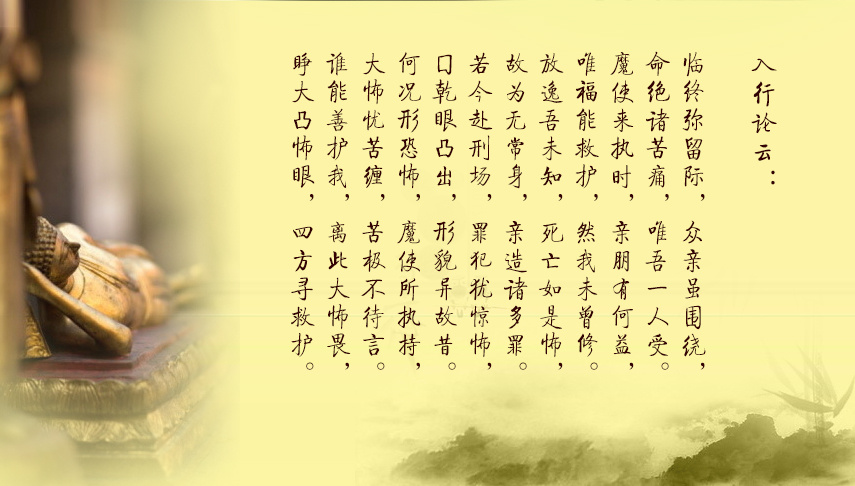 入行论云：
临终弥留际，众亲虽围绕，
命绝诸苦痛，唯吾一人受。
魔使来执时，亲朋有何益，
唯福能救护，然我未曾修。
放逸吾未知，死亡如是怖，
故为无常身，亲造诸多罪。
若今赴刑场，罪犯犹惊怖，
口乾眼凸出，形貌异故昔。
何况形恐怖，魔使所执持，
大怖忧苦缠，苦极不待言。
谁能善护我，离此大怖畏，
睁大凸怖眼，四方寻救护。